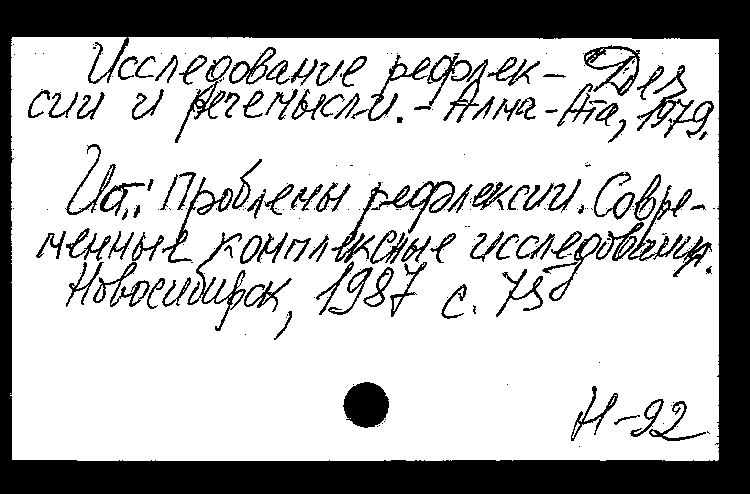 Исследование рефлек- Деп
сии и речемысли. - Алма-Ата, 1979.
Ист.: Проблемы рефлексии. Совре-
менные комплексные исследования.
Новосибирск, 1987 с. 75
Н-92